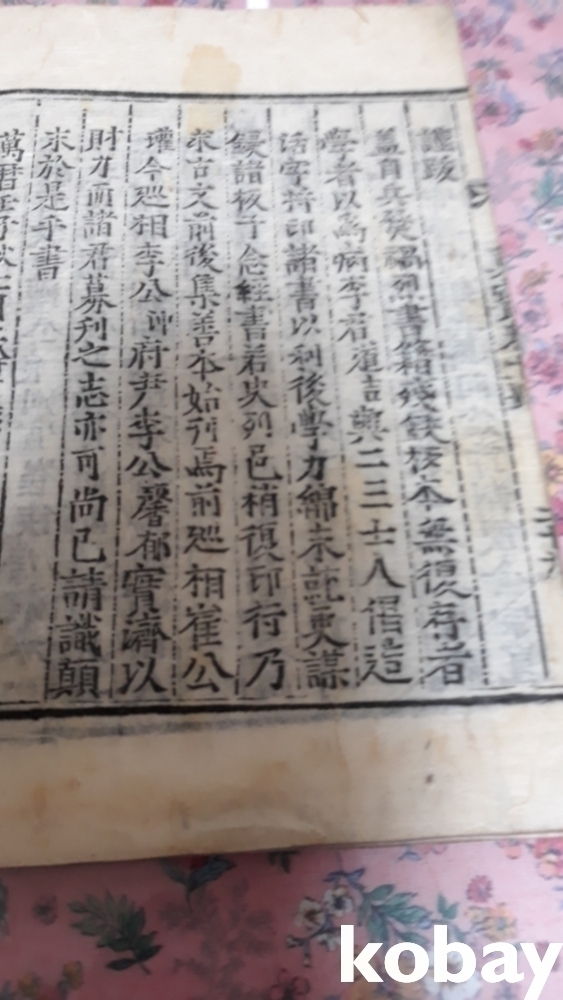 謹跋
蓋自兵燹禍烈書籍殘缺板本無復存者
學者以爲病李君道吉與二三士人倡造
活字將印諸書以利後學力綿未訖更謀
鋟諸板子念經書若史列邑稍復印行乃
求古文前後集善本始刊焉前巡相崔公
瓘今巡相李公 府尹李公馨郁實濟以
財力而諸君募刊之志亦可尚已請識顚
末於是乎書
萬曆
kobay